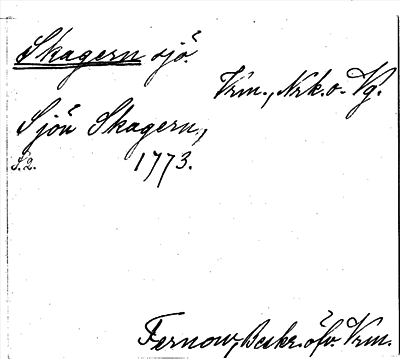 Skagern sjö.
Vrm., Nrk. o. Vg.
Sjön Skagern,
S. 2. 1773.
Fernow, Beskr. öfv. Vrm.